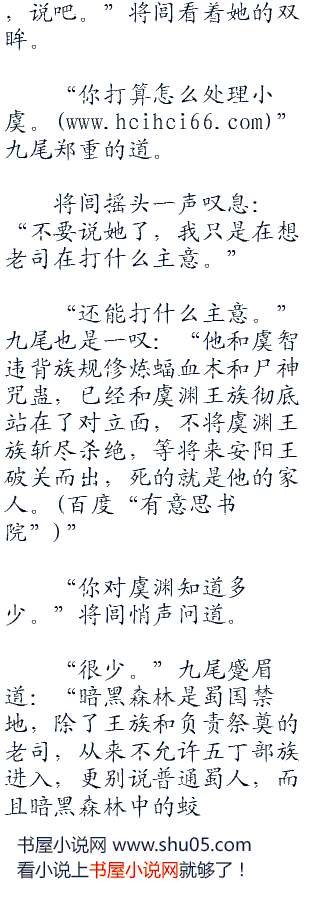 ，说吧。”将闾看着她的双
眸。
“你打算怎么处理小
虞。(www.hcihci66.com)”
九尾郑重的道。
将闾摇头一声叹息：
“不要说她了，我只是在想
老司在打什么主意。”
“还能打什么主意。”
九尾也是一叹：“他和虞智
违背族规修炼蝠血术和尸神
咒蛊，已经和虞渊王族彻底
站在了对立面，不将虞渊王
族斩尽杀绝，等将来安阳王
破关而出，死的就是他的家
人。(百度“有意思书
院”)”
“你对虞渊知道多
少。”将闾悄声问道。
“很少。”九尾蹙眉
道：“暗黑森林是蜀国禁
地，除了王族和负责祭奠的
老司，从来不允许五丁部族
进入，更别说普通蜀人，而
且暗黑森林中的蛟
书屋小说网 www.shu05.com
看小说上书屋小说网就够了！